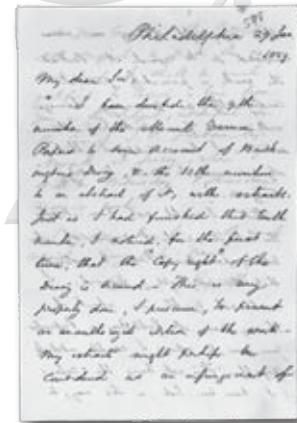 Philadelphia 29 Jan
My dear Sir
I have devoted the 9th
number of the
Papers to some account of Wash-
ington's Diary, & the 10th number
to an abstract of it, with extracts.
Just as I had finished that tenth
number, I noticed, for the first
time, that the "Copy right" of the
Diary is secured. This is very
properly done, I presume, to prevent
an unauthorized edition of the work.
My extracts might perhaps be
considered as an infringement of